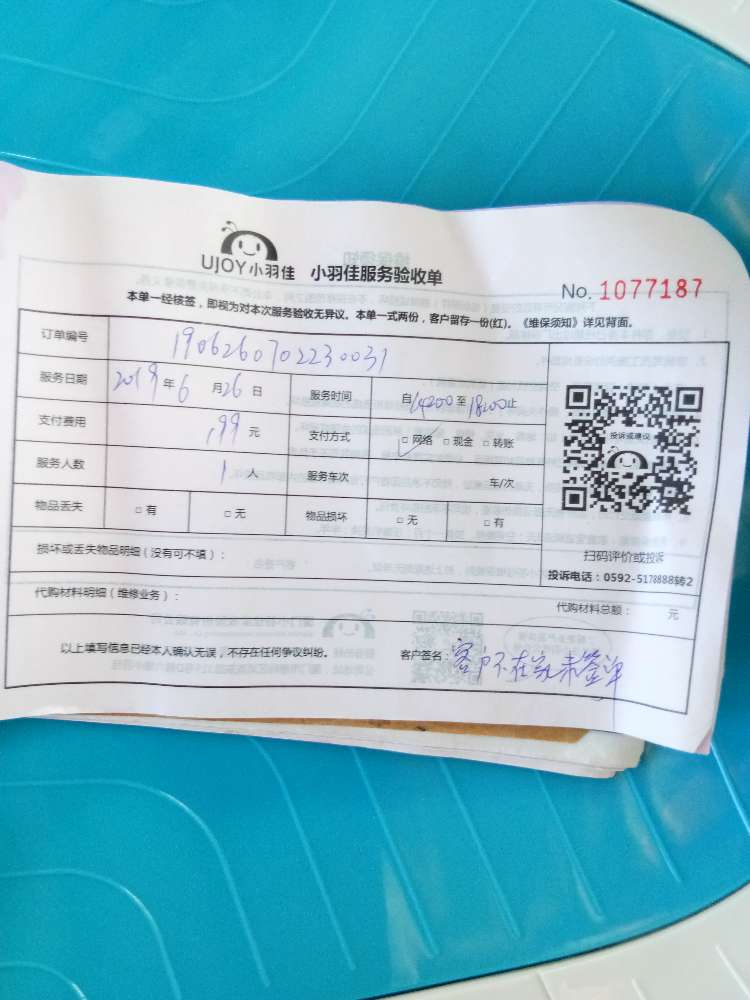 UJOY小羽佳 小羽佳服务验收单
No. 1077187
本单一经核签，即视为对本次服务验收无异议。本单一式两份，客户留存一份(红)。《维保须知》详见背面。
订单编号 1906260702230031
服务日期 2019年6月26日 服务时间 自14:00至18:00止
支付费用 199元 支付方式 □网络 □现金 □转账
服务人数 1人 服务车次 车/次
物品丢失 □有 □无 物品损坏 □无 □有
投诉或建议
扫码评价或投诉
投诉电话：0592-5178888转2
损坏或丢失物品明细（没有可不填）：
代购材料明细（维修业务）： 代购材料总额： 元
以上填写信息已经本人确认无误，不存在任何争议纠纷。 客户签名：客户不在家未签单